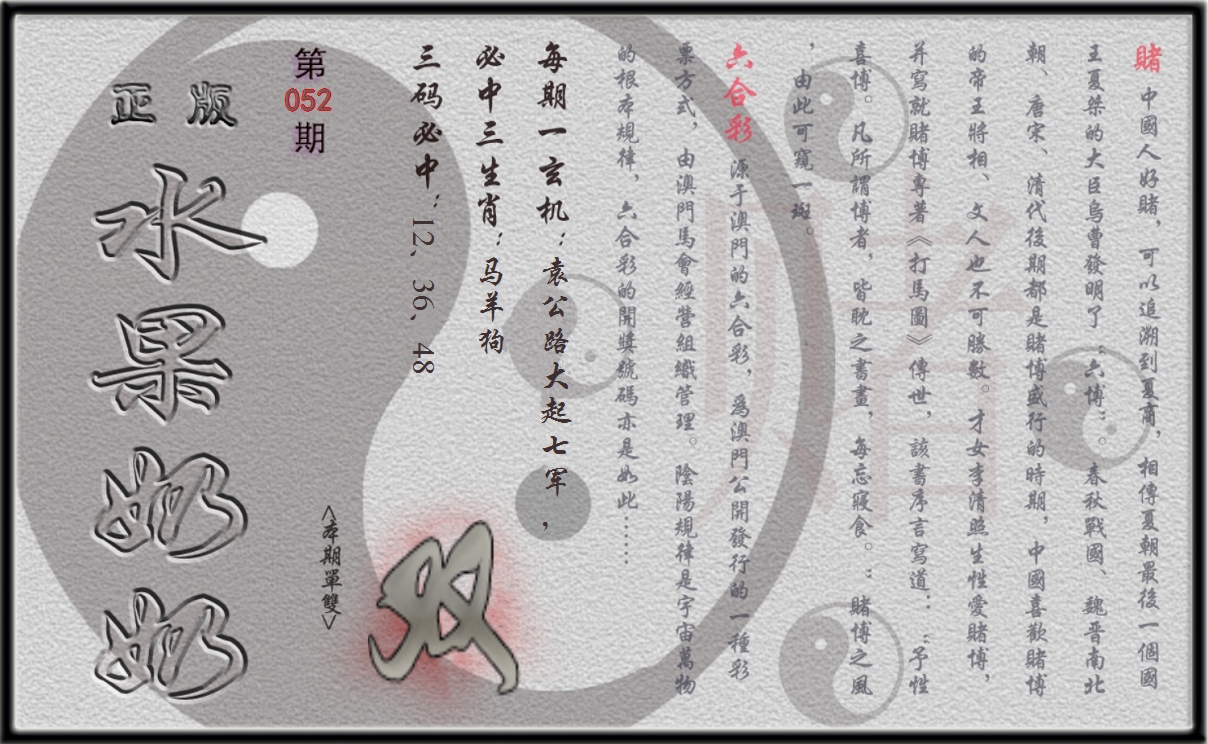 賭 中國人好賭，可以追溯到夏商，相傳夏朝最後一個國
王夏桀的大臣烏曹發明了“六博”。春秋戰國、魏晉南北
朝、唐宋、清代後期都是賭博盛行的時期，中國喜歡賭博
的帝王將相、文人也不可勝數。才女李清照生性愛賭博，
并寫就賭博專著《打馬圖》傳世，該書序言寫道：“予性
喜博。凡所謂博者，皆耽之書畫，每忘寢食。”賭博之風
，由此可窺一斑。
六合彩 源于澳門的六合彩，為澳門公開發行的一種彩
票方式，由澳門馬會經營組織管理。陰陽規律是宇宙萬物
的根本規律，六合彩的開獎號碼亦是如此……
每期一玄机：袁公路大起七军，
必中三生肖：马羊狗
三码必中：12、36、48
双
<本期單雙>
第
052
期
正版
水果奶奶
赌